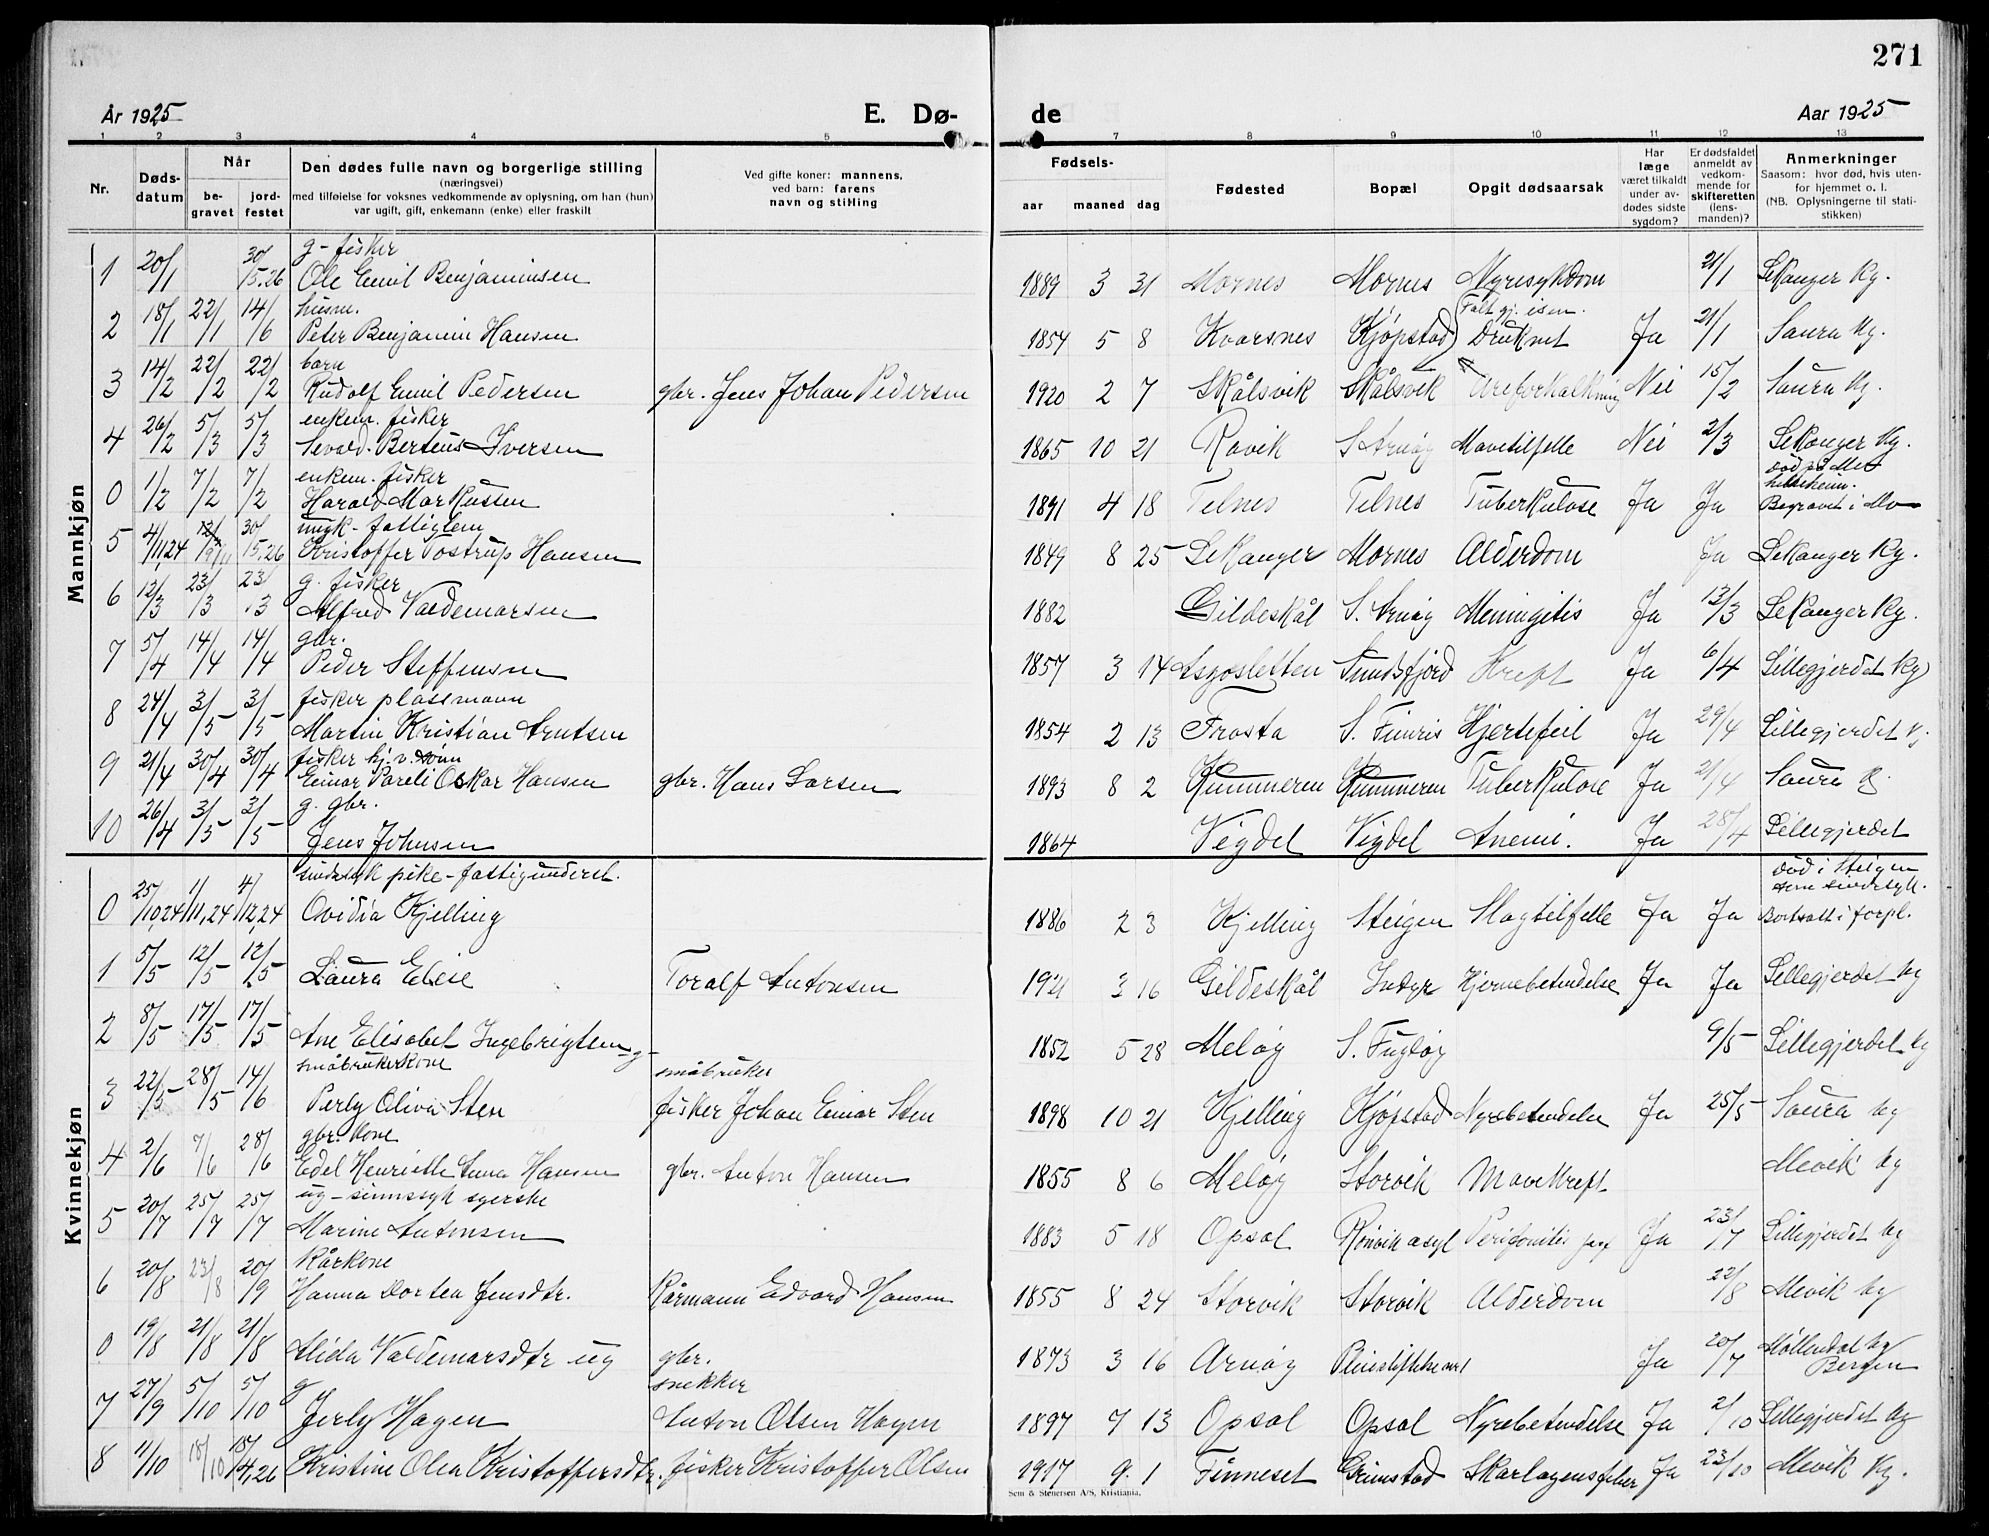 271
År 1925 E. Dø- de Aar 1925
1 2 3 4 5 7 8 9 10 11 12 13
Nr. Døds-datum Når be-gravet jord-festet Den dødes fulle navn og borgerlige stilling (næringsvei) med tilføielse for voksnes vedkommende av oplysning, om han (hun) var ugift, gift, enkemann (enke) eller fraskilt Ved gifte koner: mannens, ved barn: farens navn og stilling Fødsels- aar maaned dag Fødested Bopæl Opgit dødsaarsak Har læge været tilkaldt under av-dødes sidste sygdom? Er dødsfaldet anmeldt av vedkom-mende for skifteretten (lens-manden)? Anmerkninger Saasom: hvor død, hvis uten-for hjemmet o. l. (NB. Oplysningerne til stati-stikken)
Mannkjøn
g - fisker
1 20/1 30/5.26 Ole Emil Benjaminsen 1889 3 31 Mornes Mornes Nyresykdom 21/1 Lekanger Kg.
husm. Falt gj. isen.
2 18/1 22/1 14/6 Peter Benjamin Hansen 1854 5 8 Kvarsnes Kjøpstad Druknet Ja 21/1 Saura Kg.
barn
3 14/2 22/2 22/2 Rudolf Emil Pedersen gbr. Jens Johan Pedersen 1920 2 7 Skålsvik Skålsvik Areforkalkning Nei 15/2 Saura Kg.
enkem. fisker
4 26/2 5/3 5/3 Sevald Berteus Iversen 1865 10 21 Ravik S Arnøy Mavetilfelle Nei 2/3 Lekanger Kg.
enkem. fisker
0 1/2 7/2 7/2 Harald Markussen 1891 4 18 Telnes Telnes Tuberkulose Ja Ja Begravet i Mo
ungk - fattiglem
5 4/11,24 30/5.26 Kristoffer Tostrup Hansen 1849 8 25 Lekanger Mornes Alderdom Ja Lekanger Kg.
g. fisker
6 12/3 23/3 23/3 Alfred Valdemarsen 1882 Gildeskål S. Arnøy Meningitis Ja 13/3 Lekanger Kg.
gbr.
7 5/4 14/4 14/4 Peder Steffensen 1857 3 14 Sundsfjord Kreft Ja 6/4 Lillegjerdet Kg
fisker plassmann
8 24/4 3/5 3/5 Martin Kristian Arntsen 1854 2 13 Frosta S. Finnis Hjertefeil Ja 29/4 Lillegjerdet
fisker hj. v. sønn
9 21/4 30/4 30/4 Einar Pareli Oskar Hansen gbr. Hans Larsen 1893 8 2 Kummeren Kummeren Tuberkulose Ja 21/4 Saura
g. gbr.
10 26/4 3/5 3/5 Jens Johnsen 1864 Vigdel Vigdel Anemi. Ja 28/4 Lillegjerdet
Kvinnekjøn
sindssyk pike - fattigunderst. død i Steigen som sindssyk.
0 25/10,24 1/11,24 4/12,24 Ovidia Kjelling 1886 2 3 Kjelling Steigen Slagtilfelle Ja Ja Bortsatt i forpl.
1 5/5 12/5 12/5 Laura Elise Toralf Antonsen 1921 3 16 Gildeskål Indyr Hjernebetendelse Ja Ja Lillegjerdet kg
2 8/5 17/5 17/5 Ane Elisabet Ingebrigtsen - g - 1852 5 28 Meløy S. Fugløy 9/5 Lillegjerdet kg
småbrukerkone småbruker
3 22/5 28/5 14/6 Perly Oliva Sten fisker Johan Einar Sten 1898 10 21 Kjelling Kjøpstad Nyrebetendelse Ja 25/5 Saura kg
gbr. kone
4 2/6 7/6 28/6 Edel Henriette Anna Hansen gbr. Anton Hansen 1855 8 6 Meløy Storvik Mavekreft Mevik kg
ug - sinnssyk syerske
5 20/7 25/7 25/7 Marine Antonsen 1883 5 18 Opsal Rønvik asyl Peritonitis Ja 23/7 Lillegjerdet kg
Kårkone
6 20/8 23/8 20/9 Hanna Dortea Jensdtr. Kårmann Edvard Hansen 1855 8 24 Storvik Storvik Alderdom 22/8 Mevik kg
0 19/8 21/8 21/8 Alida Valdemarsdtr ug gbr. 1873 3 16 Arnøy Pleiestiftelse Ja 20/7 Møllendal kg Bergen
g snekker
7 27/9 5/10 5/10 Jerly Hagen Anton Olsen Hagen 1897 7 13 Opsal Opsal Nyrebetendelse Ja 2/10 Lillegjerdet kg
8 11/10 18/10 18/4,26 Kristine Olea Kristoffersdtr. fisker Kristoffer Olsen 1917 9 1 Finneset Grimstad Skarlagensfeber Ja 23/10 Mevik Kg.
Sem & Stenersen A/S, Kristiania.